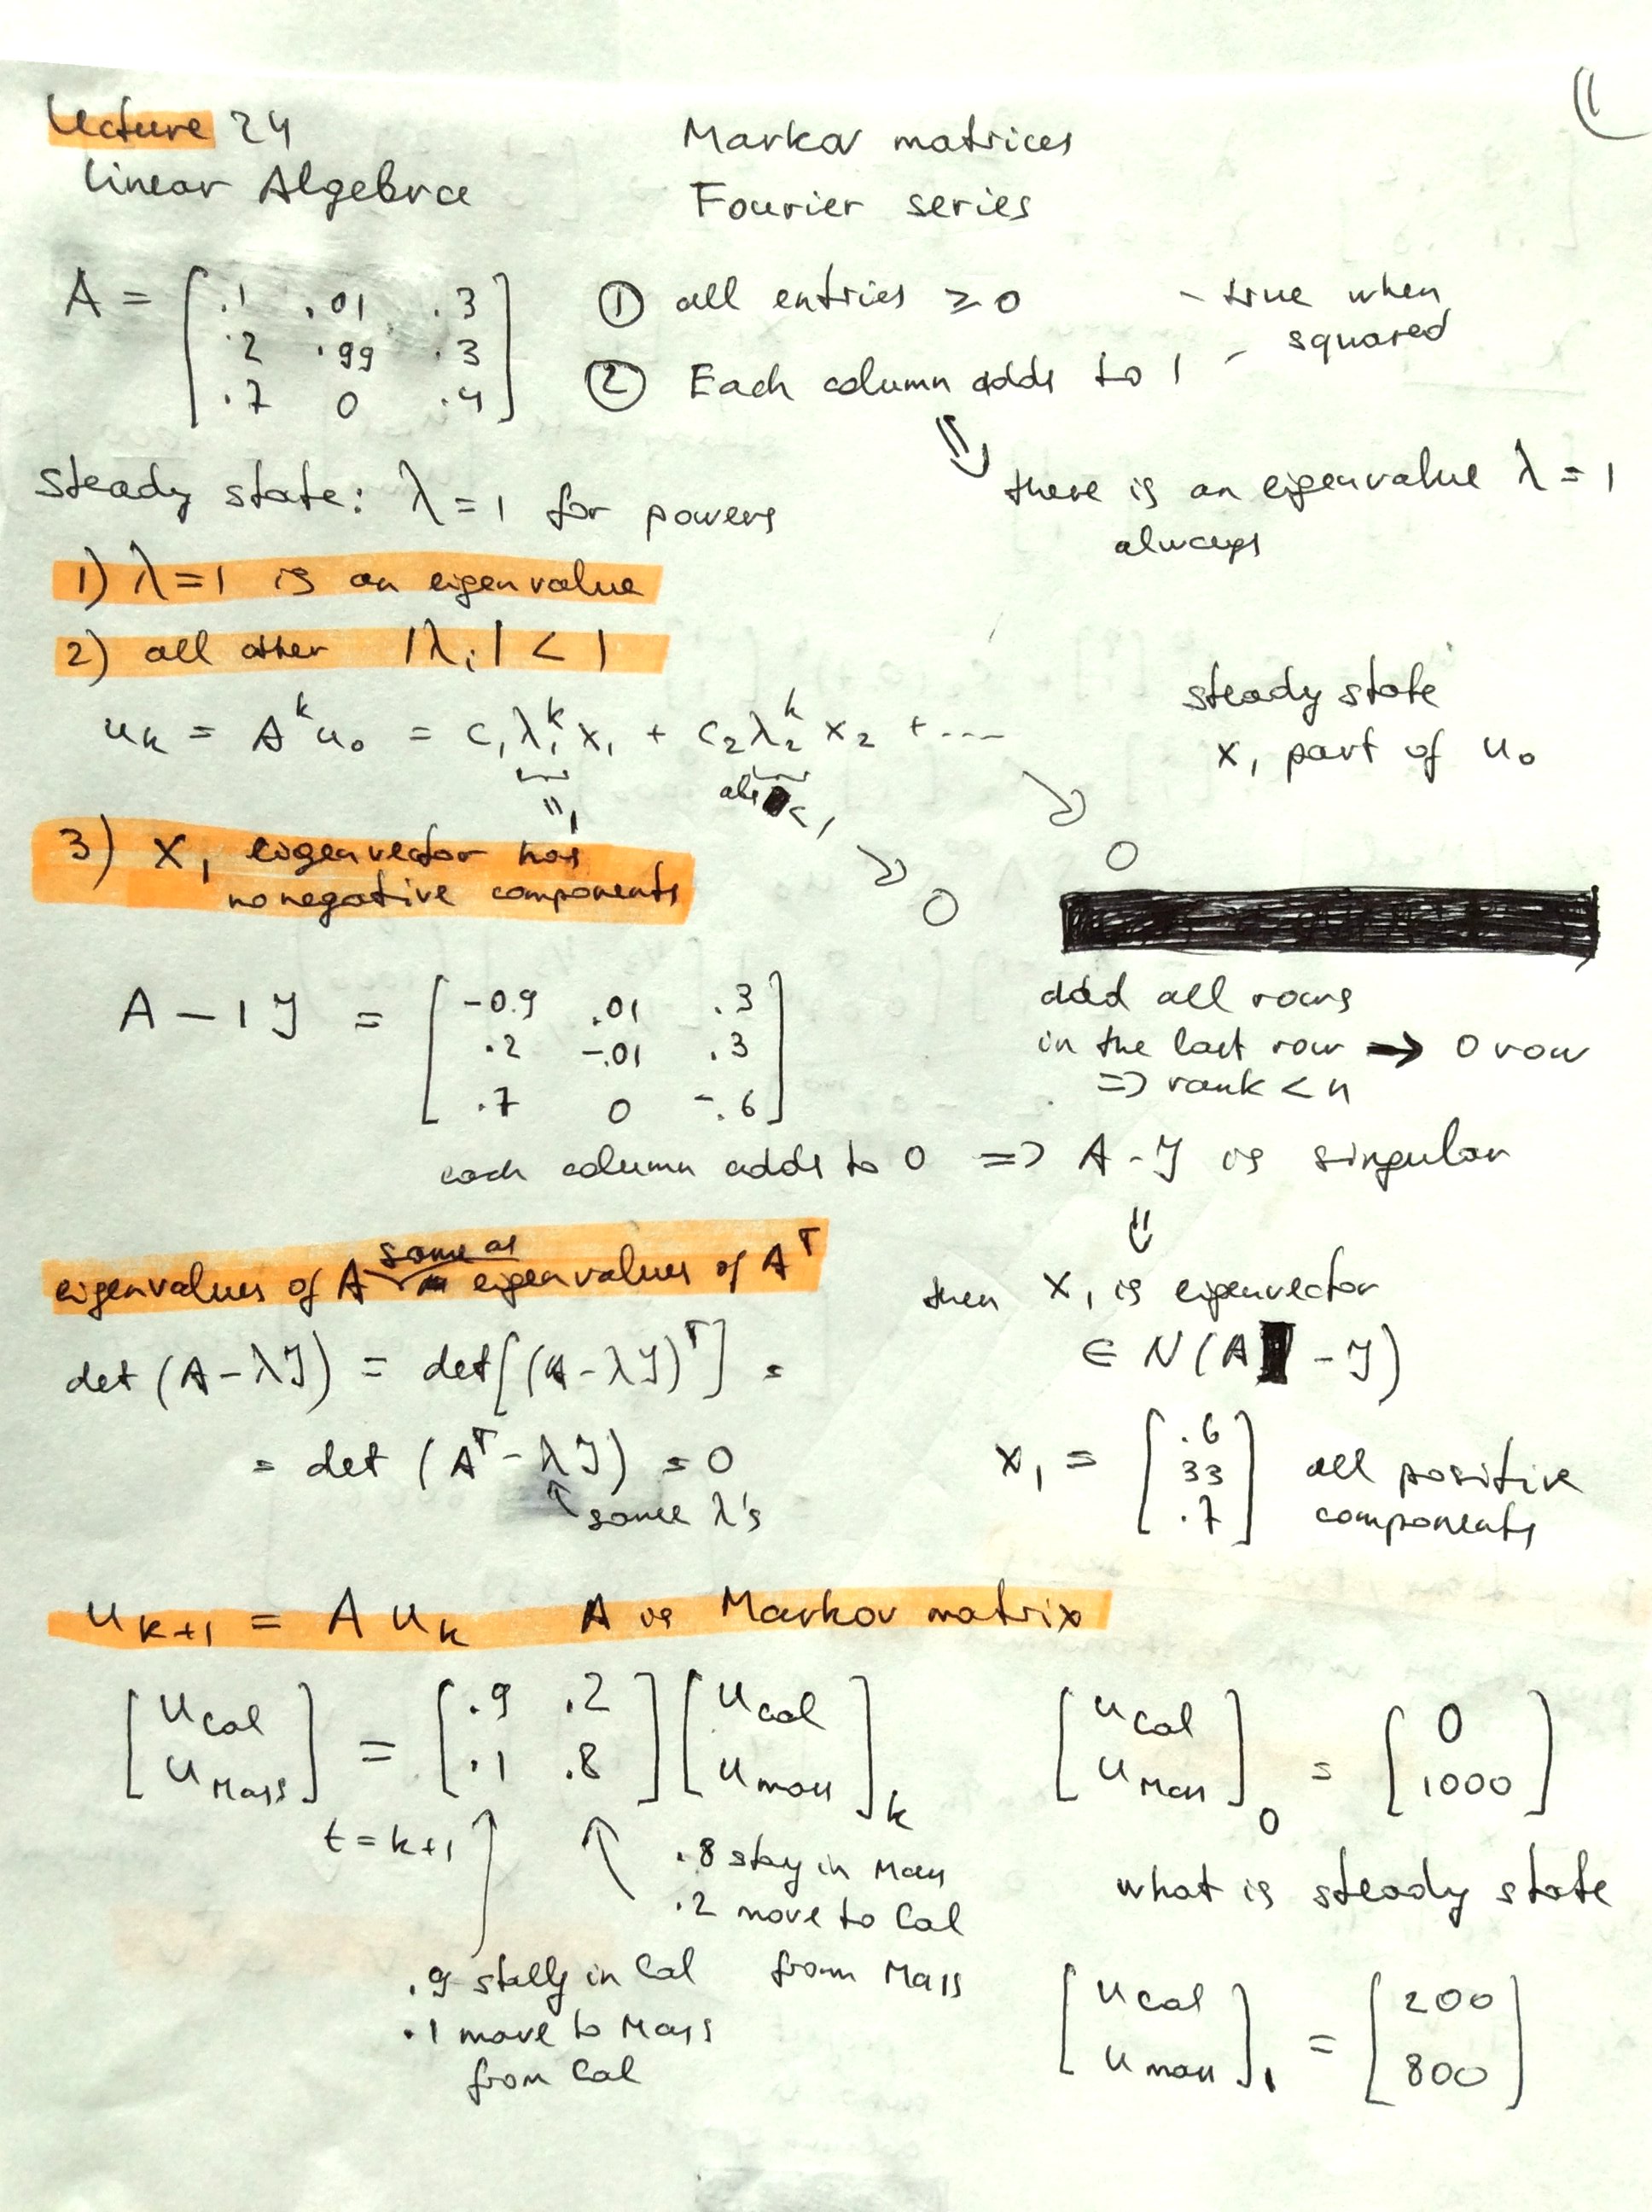 (1
Lecture 24
Linear Algebra
Markov matrices
Fourier series
A = [ .1 .01 .3
.2 .99 .3
.7 0 .4 ]
① all entries ≥ 0 - true when
squared
② Each column adds to 1 -
⇓
there is an eigenvalue λ = 1
always
steady state: λ = 1 for powers
1) λ = 1 is an eigenvalue
2) all other |λi| < 1
uk = A^k u0 = c1 λ1^k x1 + c2 λ2^k x2 + ...
= 1
abs < 1
0
0
steady state
x1 part of u0
3) x1 eigenvector has
no negative components
A - 1 I = [ -0.9 .01 .3
.2 -.01 .3
.7 0 -.6 ]
add all rows
in the last row → 0 row
=> rank < n
each column adds to 0 => A - I is singular
⇓
then x1 is eigenvector
∈ N(A - I)
x1 = [ .6
33
.7 ]
all positive
components
eigenvalues of A same as eigenvalues of A^T
det (A - λI) = det[(A - λI)^T] =
= det (A^T - λI) = 0
↑ same λ's
u k+1 = A uk A is Markov matrix
[ uCal
uMass ] t = k+1 = [ .9 .2
.1 .8 ] [ uCal
uMass ] k
.8 stay in Mass
.2 move to Cal
from Mass
.9 stay in Cal
.1 move to Mass
from Cal
[ uCal
uMass ] 0 = [ 0
1000 ]
what is steady state
[ uCal
uMass ] 1 = [ 200
800 ]